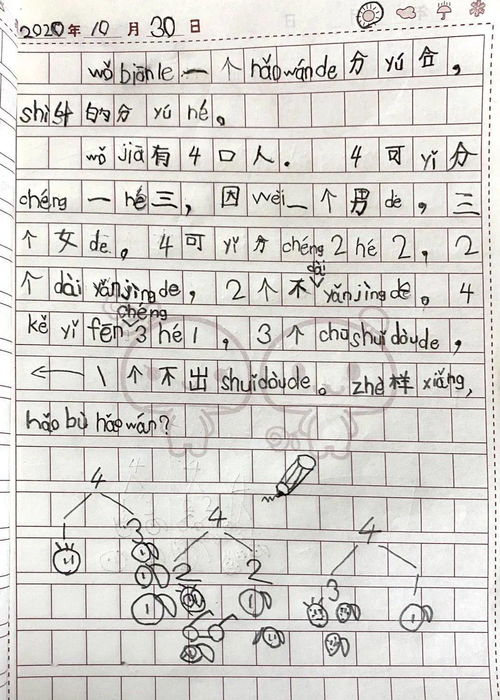 2020年10月30日
wǒ biānle 一个hǎowánde分yú合，
shì4的分yú hé。
wǒ jiā有4口人．4可yǐ分
chéng一hé三，因wèi一个男de，三
个女de，4可yǐ分chéng2hé2，2
个dài yǎnjìngde，2个不dài yǎnjìngde。4
kě yǐ fēn chéng 3hé1，3个chūshuǐdòude，
1个不出shuǐdòude。zhè样xiǎng，
hǎo bù hǎowán？
4 4 4
3 2 2 3